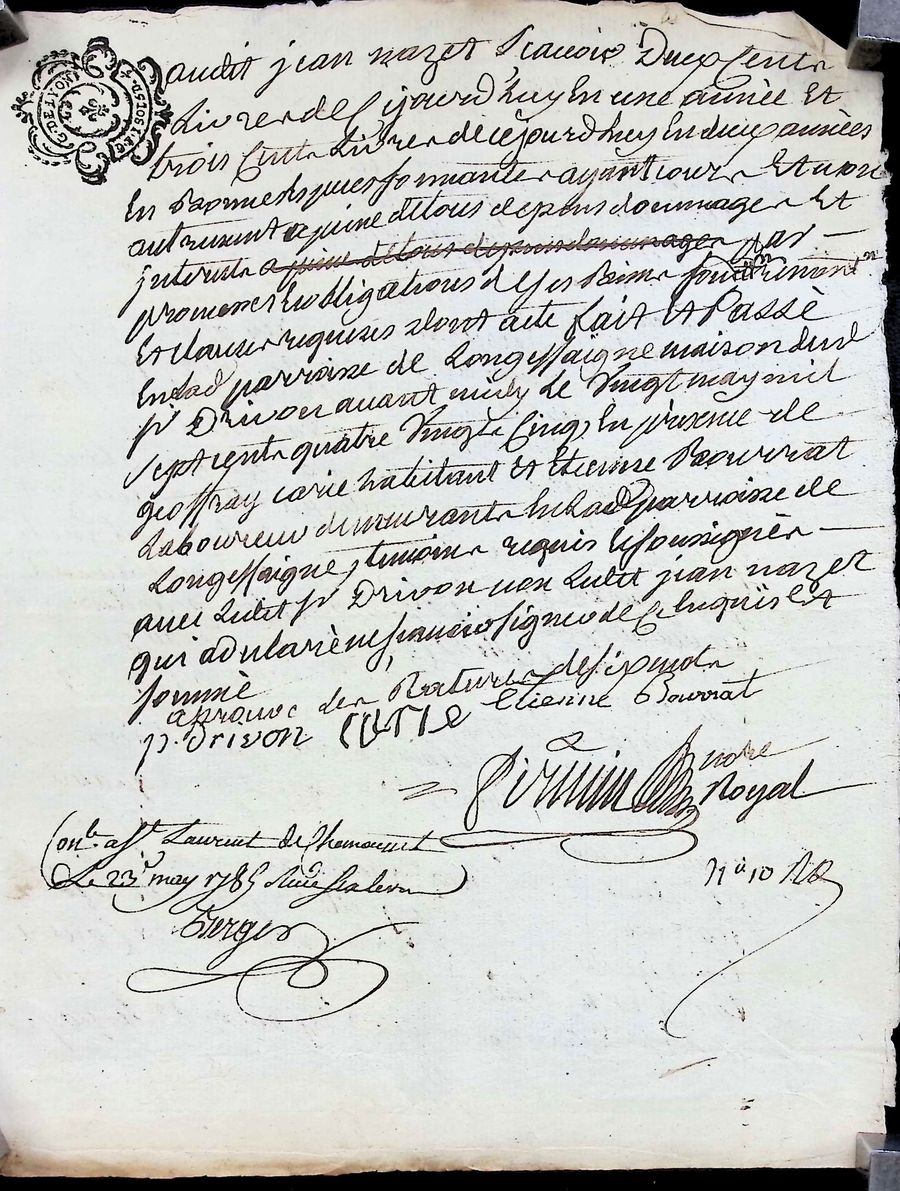 audit jean nazet Scauoir Deux Cents
Livres de Cejourd'huy En une année Et
trois Cents Livres de cejourd'huy En deux années
En Bonnes Espuces sonnantes ayant cours Et non
autrement a peine de tous depens doummages Et
jnterests a peine de tous depens doummages par
promesses obligations de ses Biens
Et clauses requises dont acte fait Et Passé
En lad parroisse de Longessaigne maison dud
sr Drivon avant midy le Vingt may mil
sept cents quatre Vingts Cinq En presence de
geoffray curé habitant Et Etienne Bourrat
Laboureur demeurants En Lad parroisse de
Longessaigne, temoins requis Et soussignés
avec Ledit sr Drivon non Ledit jean nazet
qui a declaré ne scauoir signer de ce Enquis Et
sommé
aprouvé des Ratures de six mots
p. Drivon curé Etienne Bourrat
Pirmin nore
Royal
Conlé a St Laurent de Chamousset
Le 23e may 1785
Berger